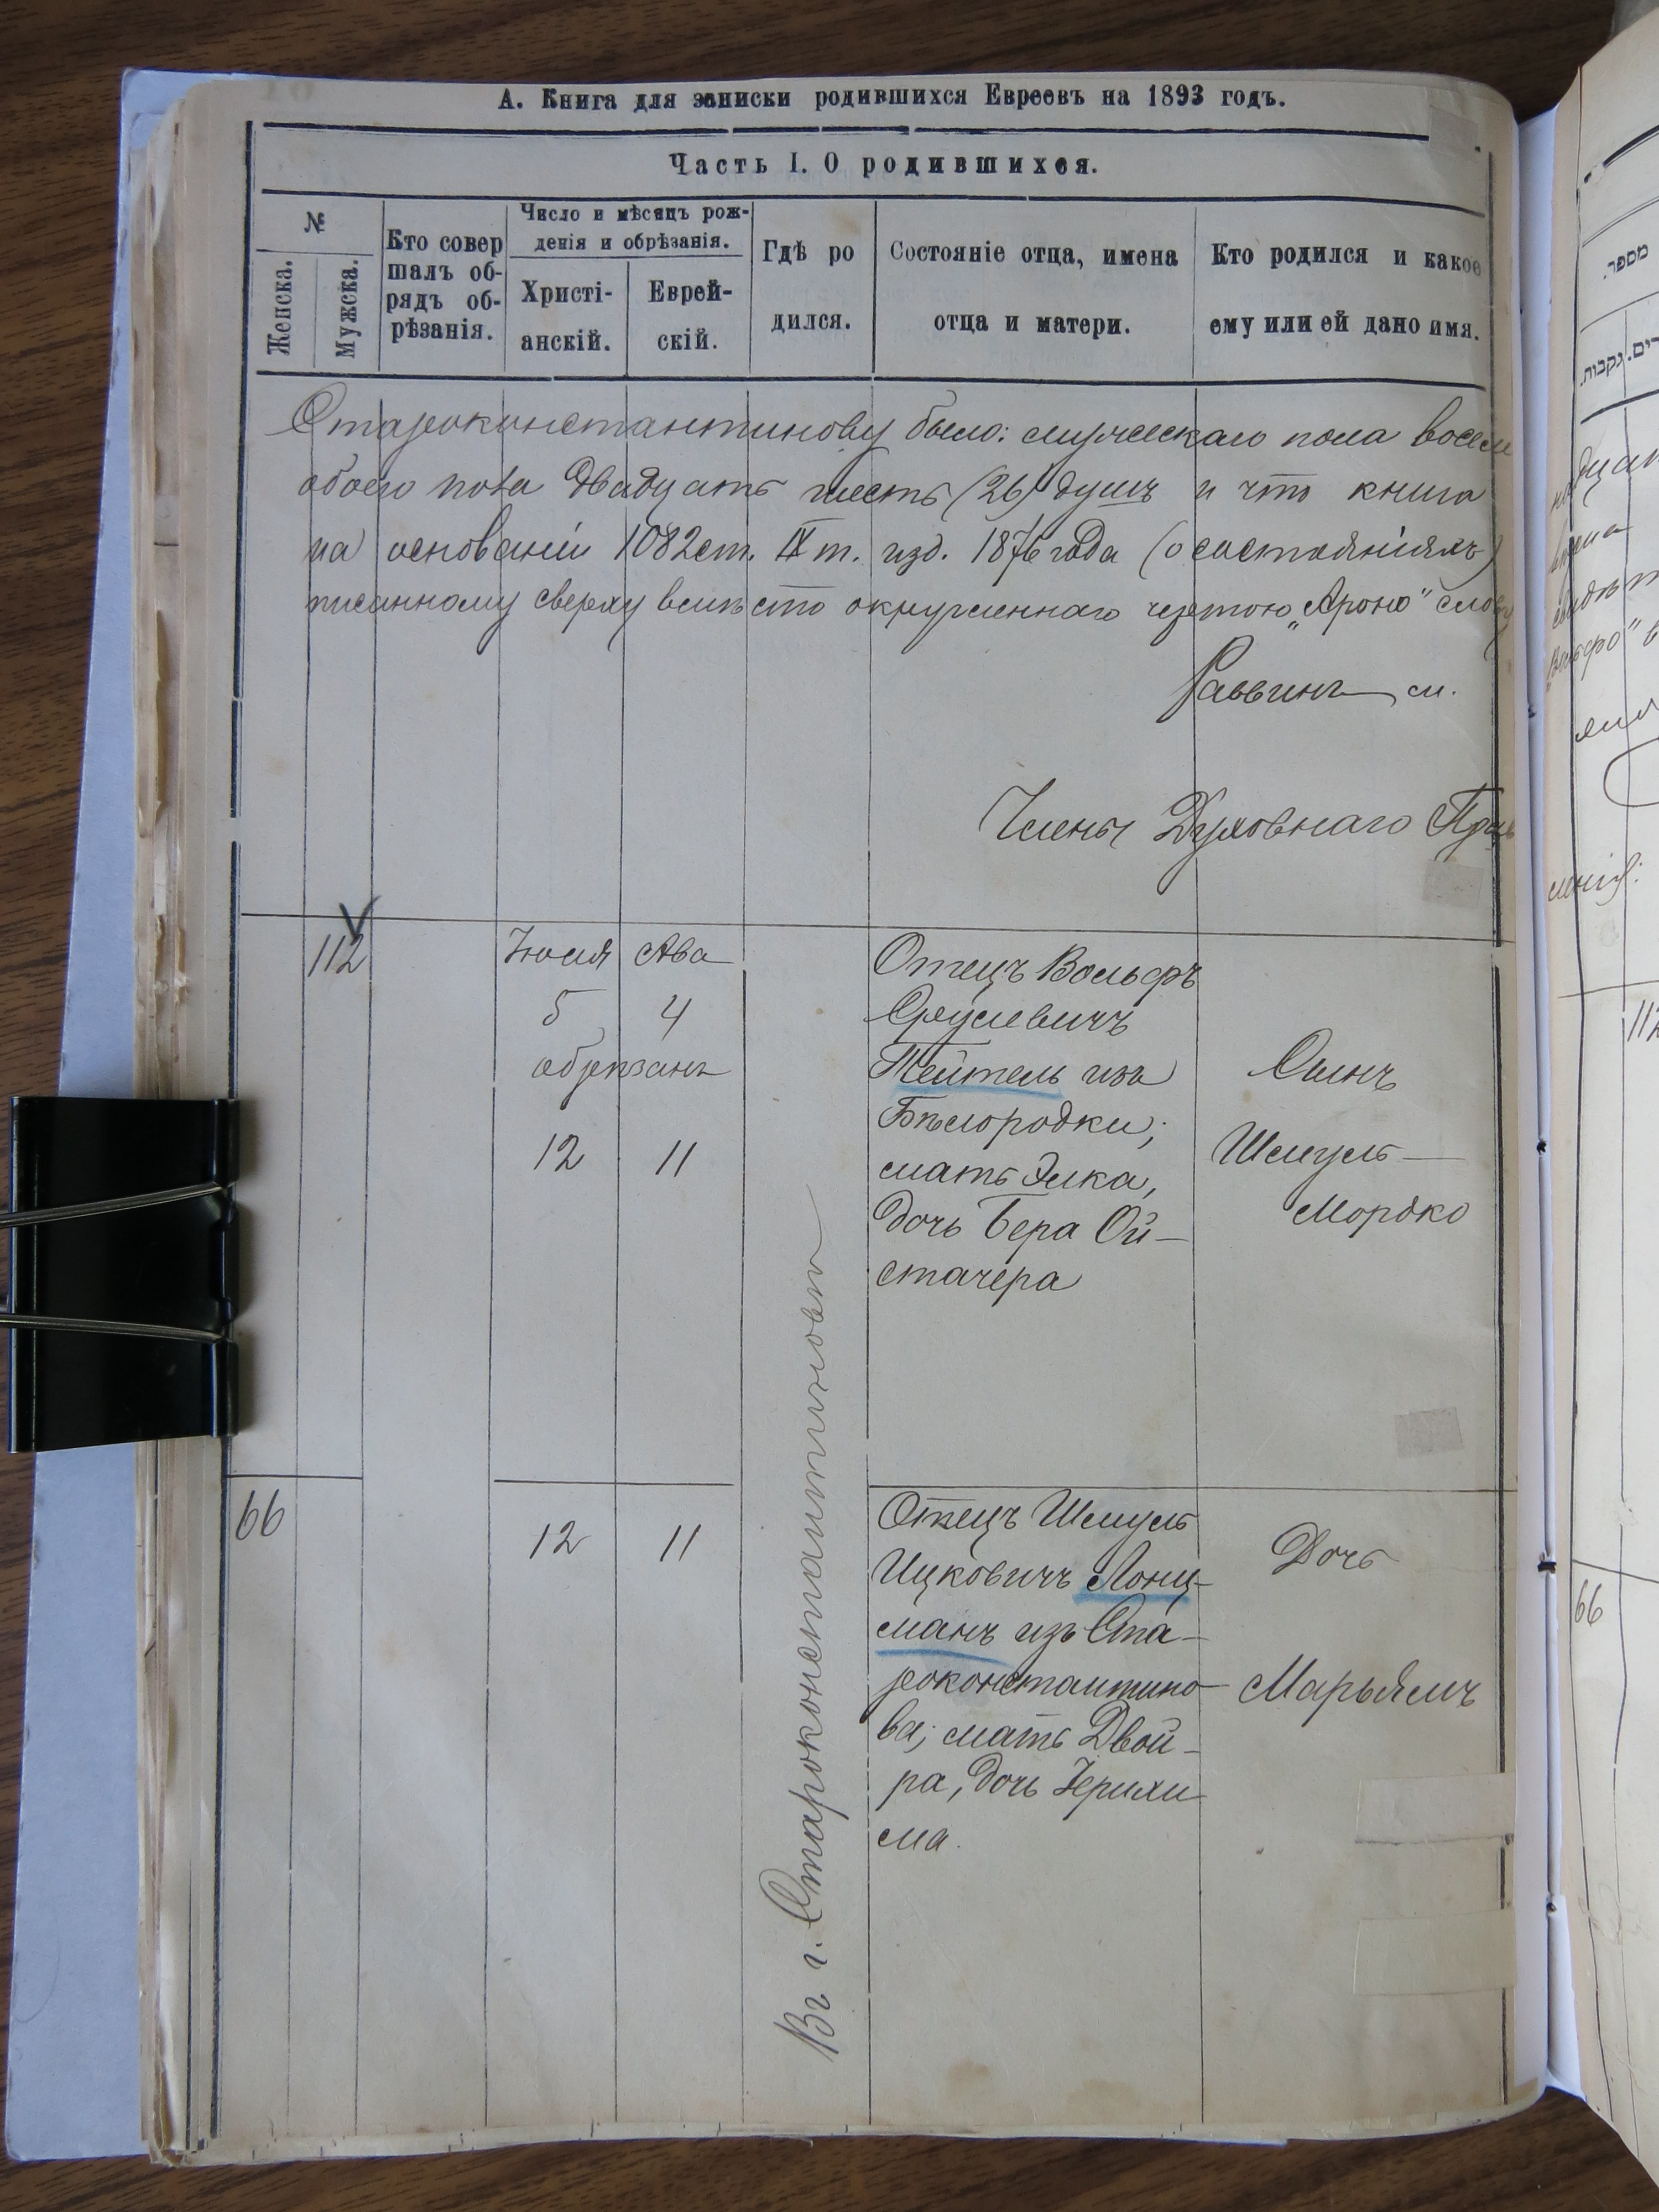 А. Книга для записки родившихся Евреевъ на 1893 годъ.
Часть I. О родившихся.
№
Женска.
Мужска.
Кто совер
шалъ об-
рядъ об-
рѣзанія.
Число и мѣсяцъ рож-
денія и обрѣзанія.
Христі-
анскій.
Еврей-
скій.
Гдѣ ро
дился.
Состояніе отца, имена
отца и матери.
Кто родился и какое
ему или ей дано имя.
Староконстантинову было: мужескаго пола восем
обоего пола двадцать шесть (26) душъ и что книга
на основаніи 1082 ст. IX т. изд. 1876 года (о состояніяхъ)
писанному сверху вмѣсто окружennаго чертою „Ароно"
Раввинъ м.
Члены Духовнаго Прав
112
Іюля
5
обрѣзанъ
12
Ава
4
11
Въ г. Староконстантиновѣ
Отецъ Вольфъ
Сруlевичъ
Тейтель изъ
Бѣлогородки;
мать Элка,
дочь Бера Ой-
стачера
Сынъ
Шмуль-
Мордко
66
12
11
Отецъ Шмуль
Ицковичъ Лонц-
манъ изъ Ста-
роконстантино-
ва; мать Двой-
ра, дочь Іерухи
ма.
Дочь
Марьямъ
מספר.
נקבות.
112
66